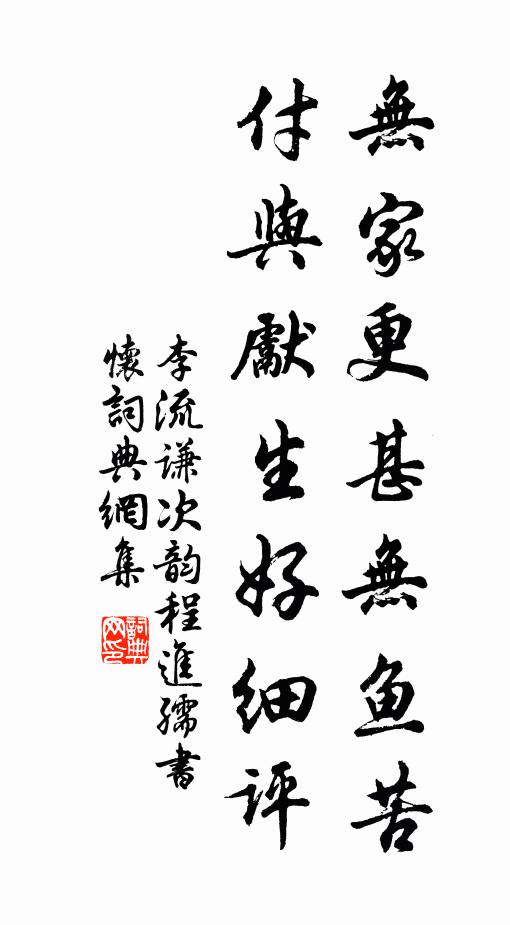 無家更甚無魚苦
付與獻生好細評
李流谦次韵程進孺書
懷詞典網集
詞典
网印